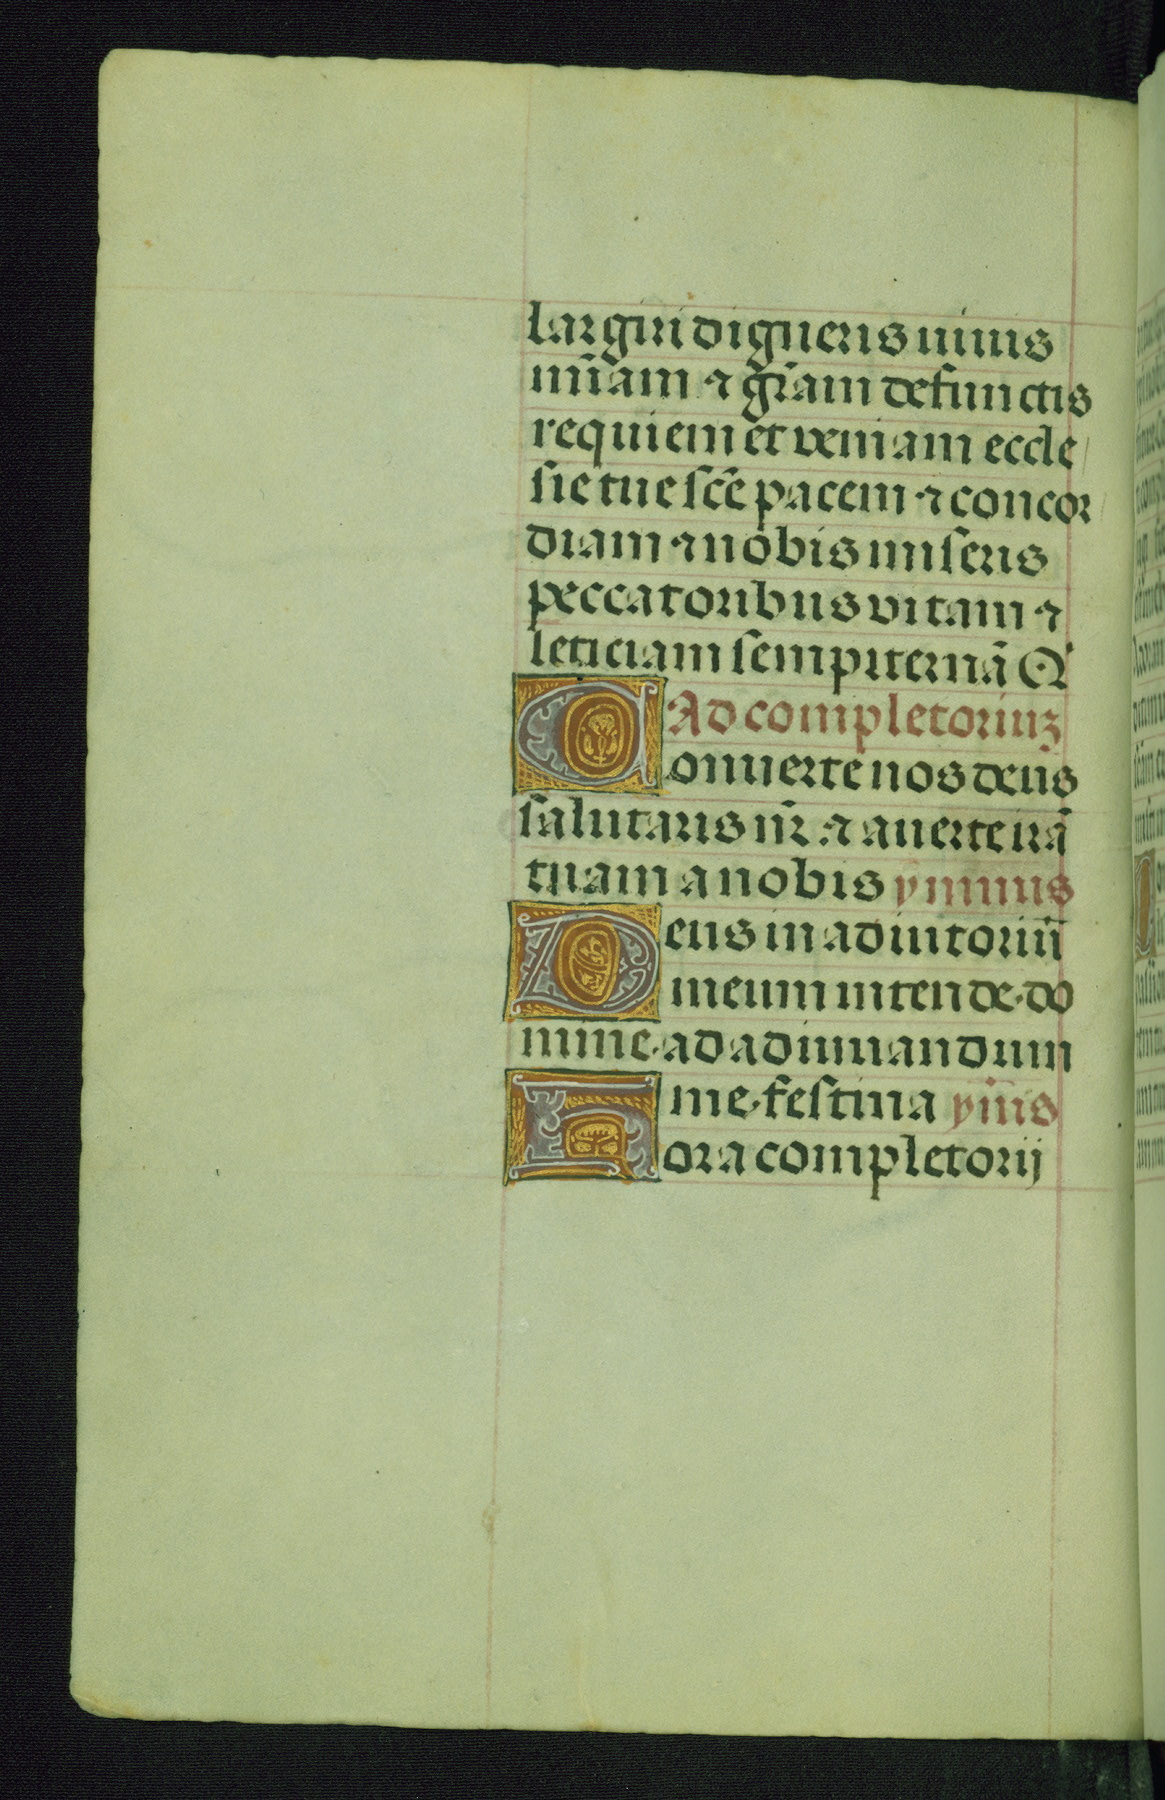 largiri digneris uiuis
mīam ⁊ gr̄am defunctis
requiem et veniam eccle
sie tue sc̄e pacem ⁊ concor
diam ⁊ nobis miseris
peccatoribus vitam ⁊
leticiam sempiternā Q
Ad completoriuz
Conuerte nos deus
salutaris nr̄ ⁊ auerte irā
tuam a nobis ymnus
Deus in adiutoriū
meum intende. do
mine. ad adiuuandum
me. festina ym̄s
Hora completorij